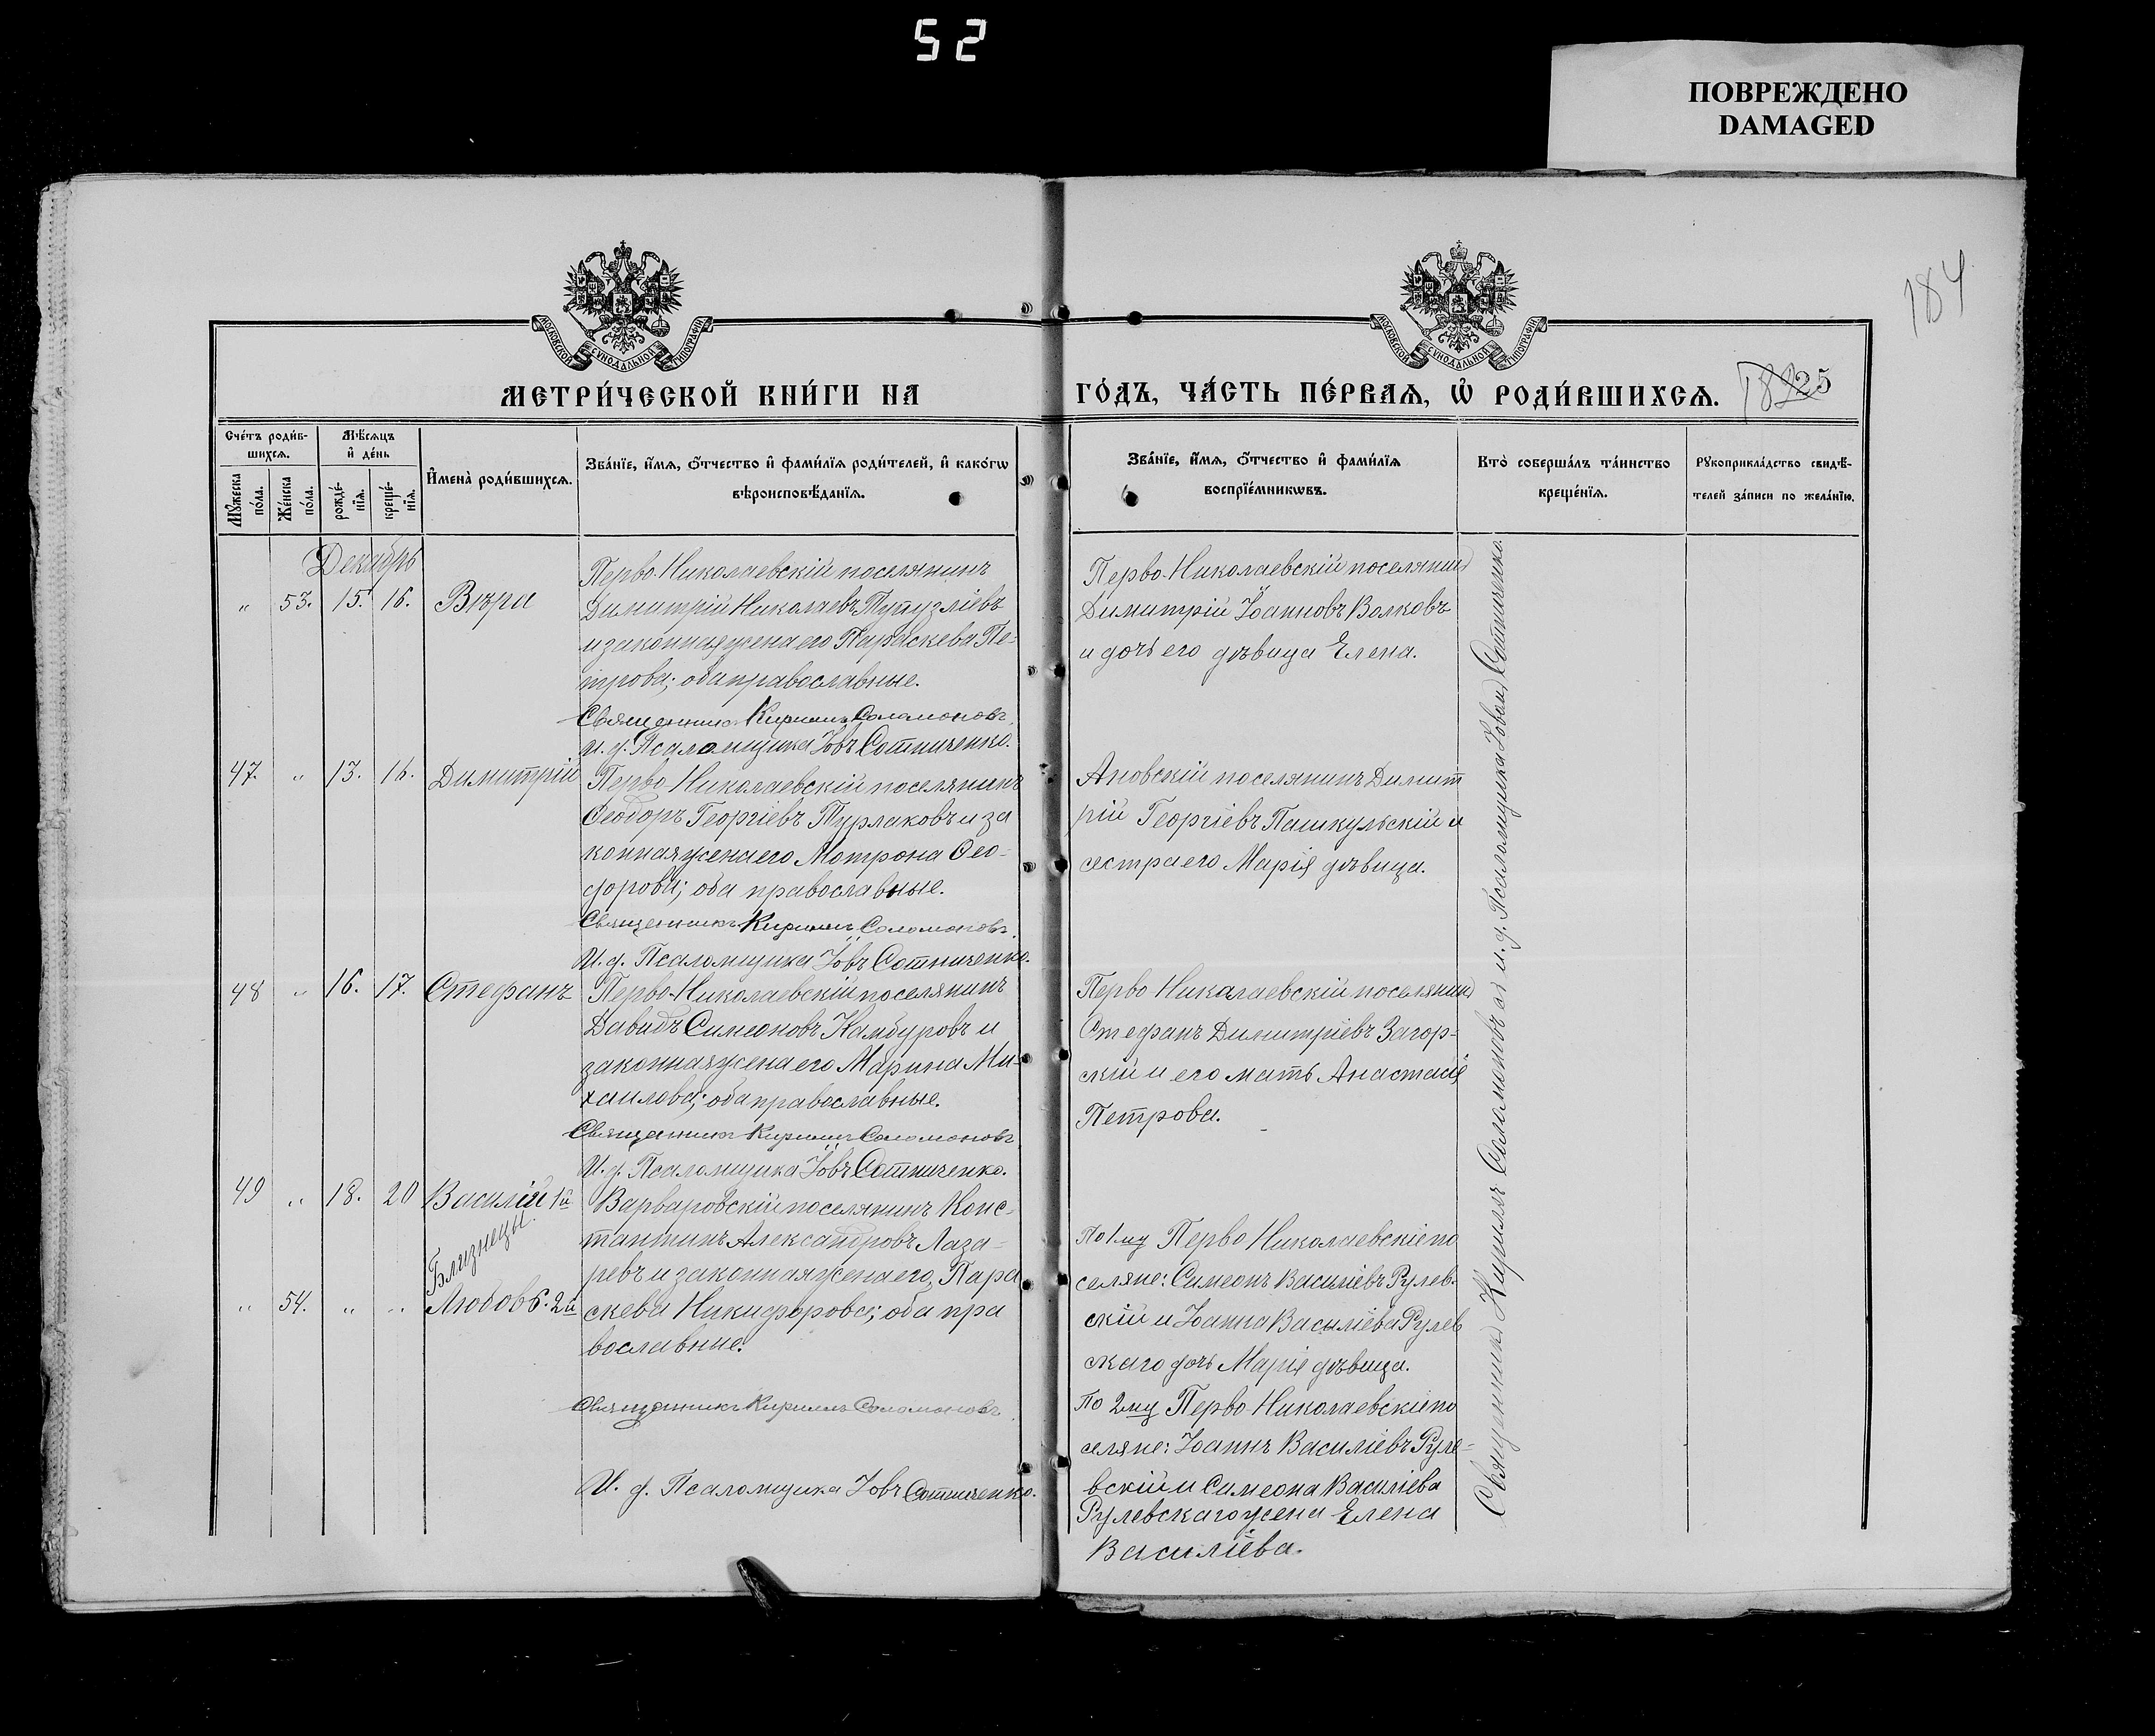 52
ПОВРЕЖДЕНО
DAMAGED
184
МОСКОВСКОЙ СѴНОДАЛЬНОЙ ТИПОГРАФІИ
МОСКОВСКОЙ СѴНОДАЛЬНОЙ ТИПОГРАФІИ
МЕТРИ́ЧЕСКОЙ КНИ́ГИ НА
ГО́ДЪ, ЧА́СТЬ ПЕ́РВАѦ, Ѡ҆ РОДИ́ВШИХСѦ.
25
Сче́тъ роди́в-
шихсѧ.
Мꙋ́жеска по́ла.
Же́нска по́ла.
Мѣ́сѧцъ
и҆ де́нь
рожде́-
нїѧ.
креще́-
нїѧ.
И҆мена̀ роди́вшихсѧ.
Зва́нїе, и҆́мѧ, ѻ҆́тчество и҆ фами́лїѧ роди́телей, и҆ како́гѡ
вѣроисповѣ́данїѧ.
Зва́нїе, и҆́мѧ, ѻ҆́тчество и҆ фами́лїѧ
воспрїе́мникѡвъ.
Кто̀ соверша́лъ та́инство
креще́нїѧ.
Рꙋкоприкла́дство свидѣ́-
телей за́писи по жела́нїю.
Декабрь
" 53. 15. 16. Вѣра
Перво-Николаевскій поселянинъ
Димитрій Николаевъ
и законная жена его Параскева Пе-
трова; оба православные.
Священникъ Кириллъ Соломоновъ.
И. ф. Псаломщика Іовъ Сотниченко.
Перво-Николаевскій поселянинъ
Димитрій Іоанновъ Волковъ
и дочь его дѣвица Елена.
47. " 13. 16. Димитрій
Перво-Николаевскій поселянинъ
Ѳеодоръ Георгіевъ Турлаковъ и за
конная жена его Мотрона Ѳео-
дорова; оба православные.
Священникъ Кириллъ Соломоновъ.
И. ф. Псаломщика Іовъ Сотниченко.
Ановскій поселянинъ Димит
рій Георгіевъ Пашкульскій и
сестра его Марія дѣвица.
48 " 16. 17. Стефанъ
Перво-Николаевскій поселянинъ
Давидъ Симеоновъ Камбуровъ и
законная жена его Марина Ми-
хаилова; оба православные.
Священникъ Кириллъ Соломоновъ
И. ф. Псаломщика Іовъ Сотниченко.
Перво Николаевскій поселянинъ
Стефанъ Димитріевъ Загор-
скій и его мать Анастасія
Петрова.
49 " 18. 20 Василій 1й
Близнецы.
" 54. " " Любовь. 2й
Варваровскій поселянинъ Конс-
тантинъ Александровъ Лаза-
ревъ и законная жена его, Пара
скева Никифорова; оба пра
вославные.
Священникъ Кириллъ Соломоновъ
И. ф. Псаломщика Іовъ Сотниченко.
По 1му Перво Николаевскіе по
селяне: Симеонъ Василіевъ Рулев-
скій и Іоанна Василіева Рулев
скаго дочь Марія дѣвица.
По 2му Перво-Николаевскіе по
селяне: Іоаннъ Василіевъ Руле-
вскій и Симеона Василіева
Рулевскаго жена Елена
Василіева.
Священникъ Кириллъ Соломоновъ и и. ф. Псаломщика Іовъ Сотниченко.